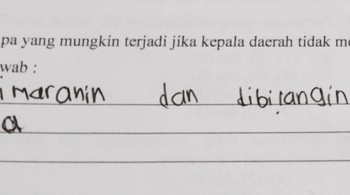 pa yang mungkin terjadi jika kepala daerah tidak me
wab :
imaranin dan dibilangin
a